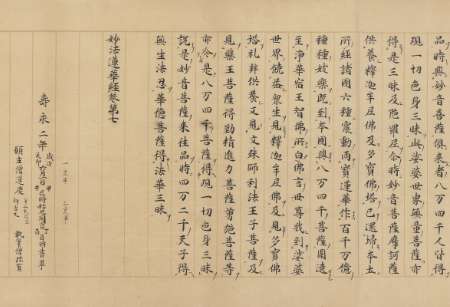 品時與妙音菩薩俱來者八万四千人皆得
現一切色身三昧此娑婆世界無量菩薩亦
得是三昧及陀羅尼尒時妙音菩薩摩訶薩
供養釋迦牟尼佛及多寶佛塔已還歸本土
所經諸國六種震動雨寶蓮華作百千万億
種種妓樂既到本國與八万四千菩薩圍遶
至淨華宿王智佛所白佛言世尊我到娑婆
世界饒益衆生見釋迦牟尼佛及見多寶佛
塔礼拜供養又見文殊師利法王子菩薩及
見藥王菩薩得勤精進力菩薩勇施菩薩等
亦令是八万四千菩薩得現一切色身三昧
說是妙音菩薩來往品時四万二千天子得
無生法忍華德菩薩得法華三昧
妙法蓮華經卷第七
壽永二年
願主僧運慶
執筆僧珍賀